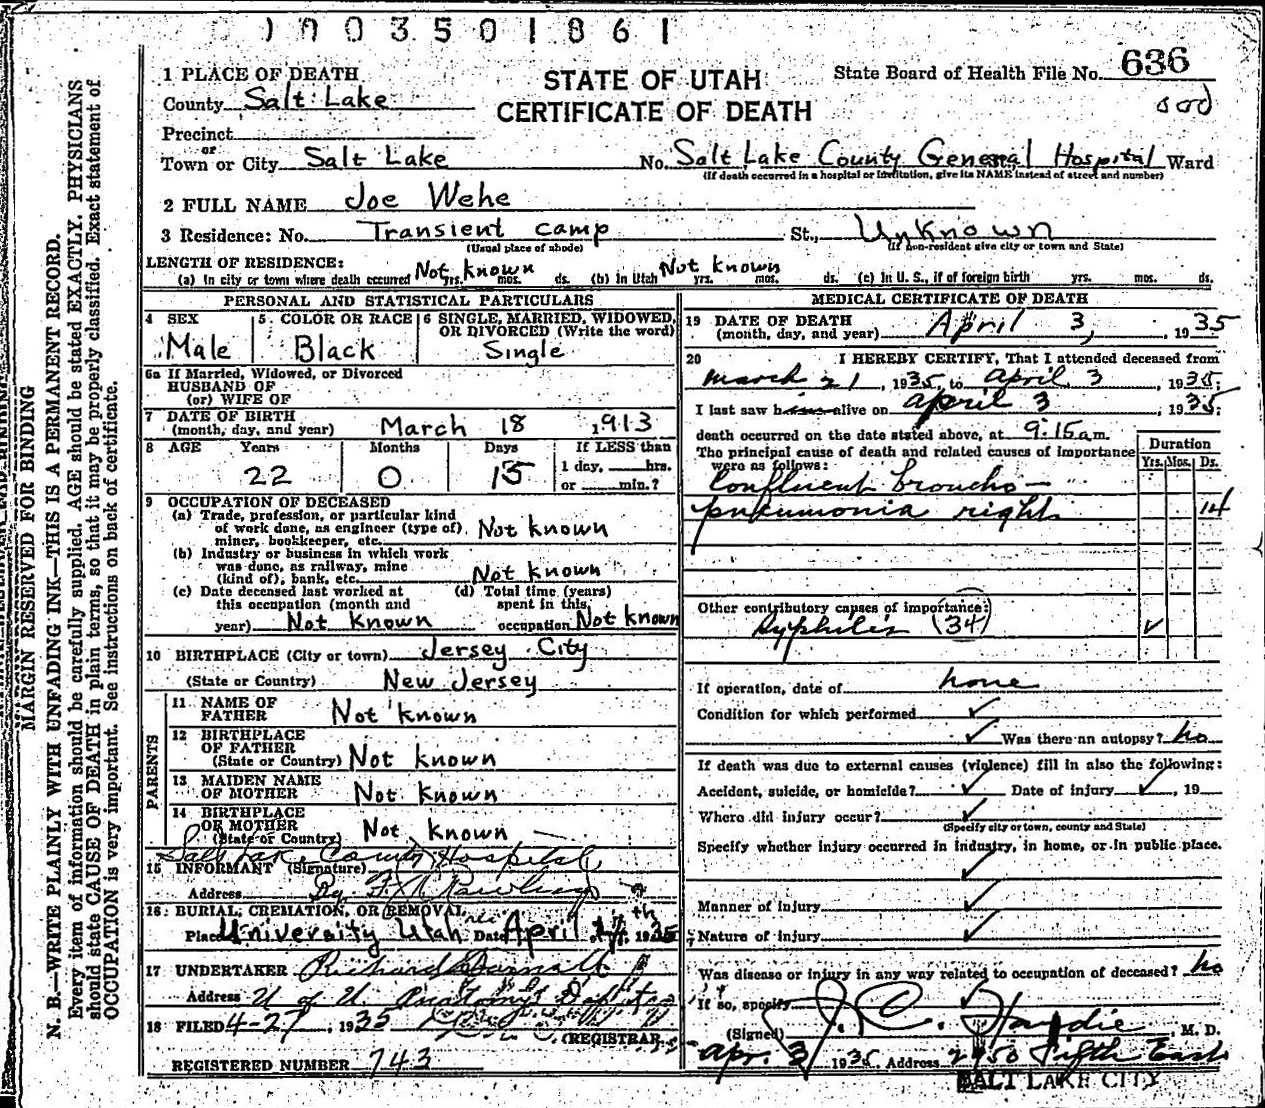 1003501861
STATE OF UTAH
CERTIFICATE OF DEATH
State Board of Health File No. 636
1 PLACE OF DEATH
County Salt Lake
Precinct
or
Town or City Salt Lake No. Salt Lake County General Hospital Ward
(If death occurred in a hospital or institution, give its NAME instead of street and number)
2 FULL NAME Joe Wehe
3 Residence: No. Transient camp St., Unknown
(Usual place of abode) (If non-resident give city or town and State)
LENGTH OF RESIDENCE:
(a) In city or town where death occurred Not known yrs. mos. ds. (b) In Utah Not known yrs. mos. ds. (c) In U. S., if of foreign birth yrs. mos. ds.
PERSONAL AND STATISTICAL PARTICULARS
4 SEX 5 COLOR OR RACE 6 SINGLE, MARRIED, WIDOWED, OR DIVORCED (Write the word)
Male Black Single
6a If Married, Widowed, or Divorced
HUSBAND OF
(or) WIFE OF
7 DATE OF BIRTH
(month, day, and year) March 18 1913
8 AGE Years Months Days If LESS than
22 0 15 1 day, hrs.
or min.?
9 OCCUPATION OF DECEASED
(a) Trade, profession, or particular kind
of work done, as engineer (type of), Not known
miner, bookkeeper, etc.
(b) Industry or business in which work
was done, as railway, mine
(kind of), bank, etc. Not known
(c) Date deceased last worked at (d) Total time (years)
this occupation (month and spent in this
year) Not Known occupation Not known
10 BIRTHPLACE (City or town) Jersey City
(State or Country) New Jersey
PARENTS
11 NAME OF
FATHER Not known
12 BIRTHPLACE
OF FATHER
(State or Country) Not known
13 MAIDEN NAME
OF MOTHER Not known
14 BIRTHPLACE
OF MOTHER
(State or Country) Not known
Salt Lake County Hospital
15 INFORMANT (Signature)
Address By
16 BURIAL, CREMATION, OR REMOVAL
Place University Utah Date April 1935
17 UNDERTAKER Richard
Address U of U. Anatomy
18 FILED 4-27, 1935
(REGISTRAR)
REGISTERED NUMBER 743
MEDICAL CERTIFICATE OF DEATH
19 DATE OF DEATH
(month, day, and year) April 3, 1935
20 I HEREBY CERTIFY, That I attended deceased from
March 21, 1935, to April 3, 1935;
I last saw him alive on April 3, 1935;
death occurred on the date stated above, at 9:15 a m.
The principal cause of death and related causes of importance
were as follows:
Duration
Yrs. Mos. Ds.
Confluent broncho-
pneumonia right 14
Other contributory causes of importance:
Syphilis (34) ✓
If operation, date of none
Condition for which performed ✓
✓ Was there an autopsy? no
If death was due to external causes (violence) fill in also the following:
Accident, suicide, or homicide? ✓ Date of injury ✓, 19
Where did injury occur? ✓
(Specify city or town, county and State)
Specify whether injury occurred in industry, in home, or in public place.
✓
Manner of injury ✓
Nature of injury ✓
Was disease or injury in any way related to occupation of deceased? no
If so, specify ✓
(Signed) J. C. Hardie, M. D.
Apr. 3 1935. Address 2450 Fifth East
SALT LAKE CITY
MARGIN RESERVED FOR BINDING
N. B.—WRITE PLAINLY WITH UNFADING INK—THIS IS A PERMANENT RECORD.
Every item of information should be carefully supplied. AGE should be stated EXACTLY. PHYSICIANS
should state CAUSE OF DEATH in plain terms, so that it may be properly classified. Exact statement of
OCCUPATION is very important. See instructions on back of certificate.